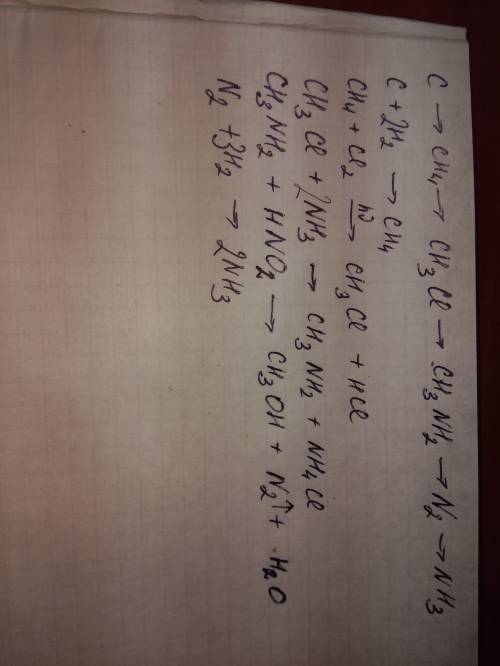 C → CH₄ → CH₃Cl → CH₃NH₂ → N₂ → NH₃
C + 2H₂ → CH₄
CH₄ + Cl₂ hν→ CH₃Cl + HCl
CH₃Cl + 2NH₃ → CH₃NH₂ + NH₄Cl
CH₃NH₂ + HNO₂ → CH₃OH + N₂↑ + H₂O
N₂ + 3H₂ → 2NH₃